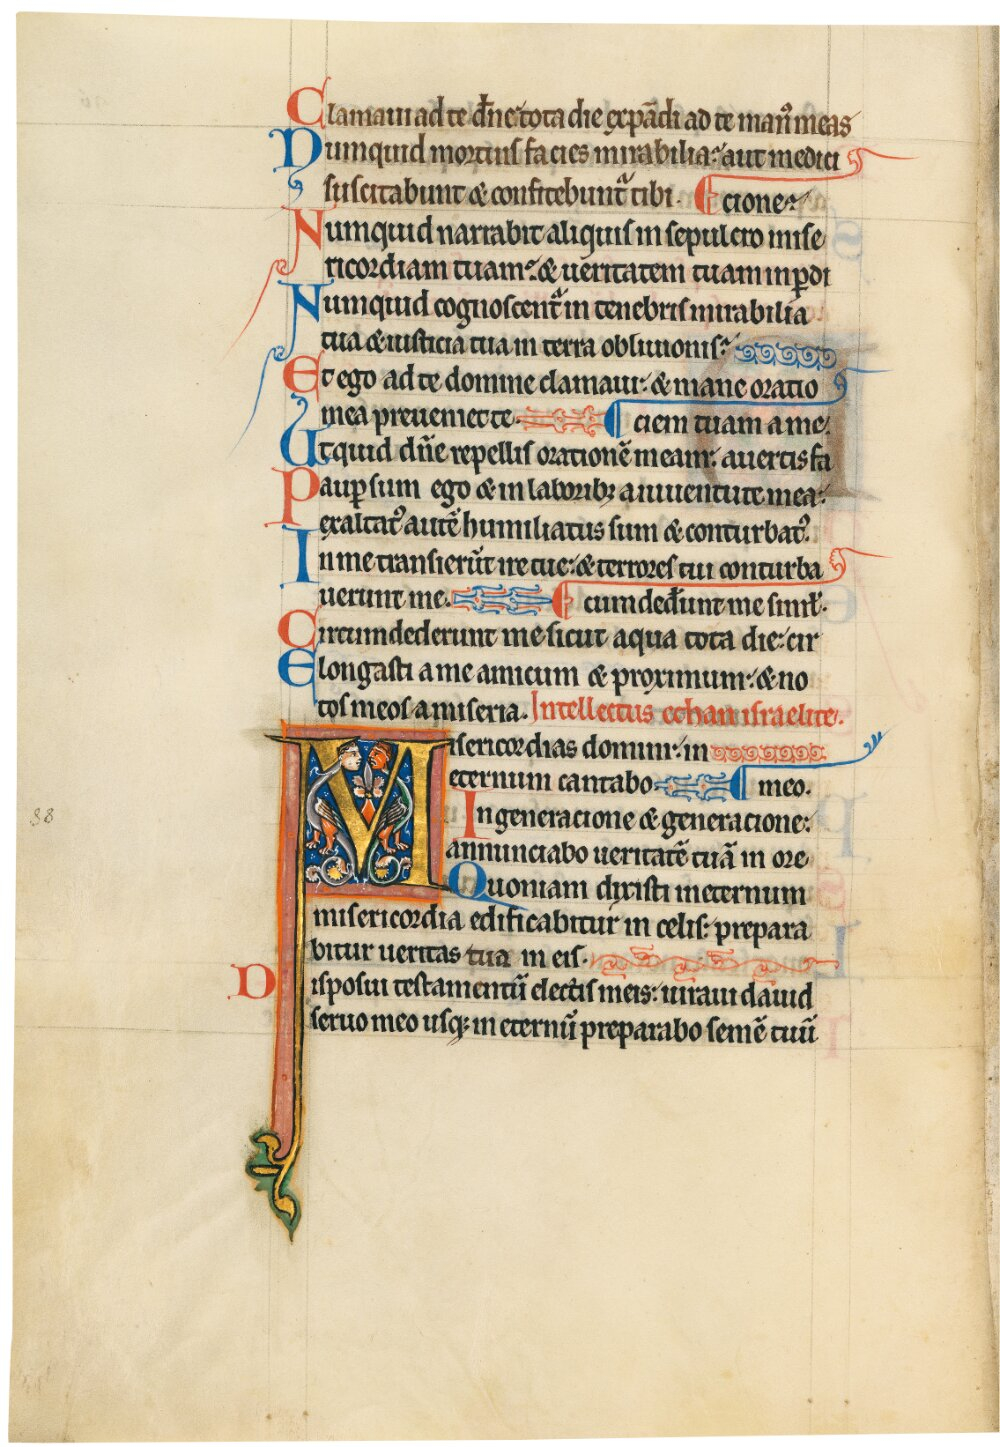 Clamaui ad te dn̄e tota die expādi ad te manꝰ meas
Numquid mortuis facies mirabilia: aut medici
suscitabunt & confitebunt᷑ tibi. cione:
Numquid narrabit aliquis in sepulcro mise
ricordiam tuam: & ueritatem tuam in ꝑdi
Numquid cognoscent᷑ in tenebris mirabilia
tua & iusticia tua in terra obliuionis:
Et ego ad te domine clamaui: & mane oratio
mea preueniet te. ciem tuam a me:
Utquid dn̄e repellis orationē meam: auertis fa
Pauꝑ sum ego & in laboribꝫ a iuuentute mea:
exaltatꝰ autē humiliatus sum & conturbatꝰ.
In me transierūt ire tue: & terrores tui conturba
uerunt me. cumdedunt me simł.
Circumdederunt me sicut aqua tota die: cir
Elongasti a me amicum & proximum: & no
tos meos a miseria. Intellectus ethan israelite.
Misericordias domini: in
eternum cantabo meo.
In generacione & generacione:
annunciabo ueritatē tuā in ore
Quoniam dixisti in eternum
misericordia edificabitur in celis: prepara
bitur ueritas tua in eis.
Disposui testamentū electis meis: iuraui dauid
seruo meo usqꝫ in eternū preparabo semē tuū
88